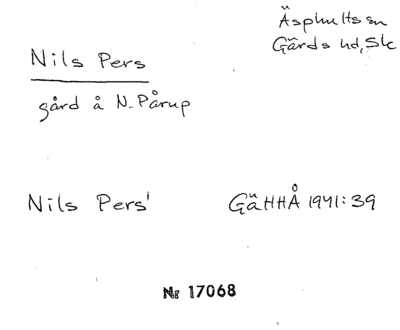 Äsphults sn
Gärds hd, Sk
Nils Pers
gård å N. Pårup
Nils Pers'
GäHHÅ 1941:39
Nr 17068